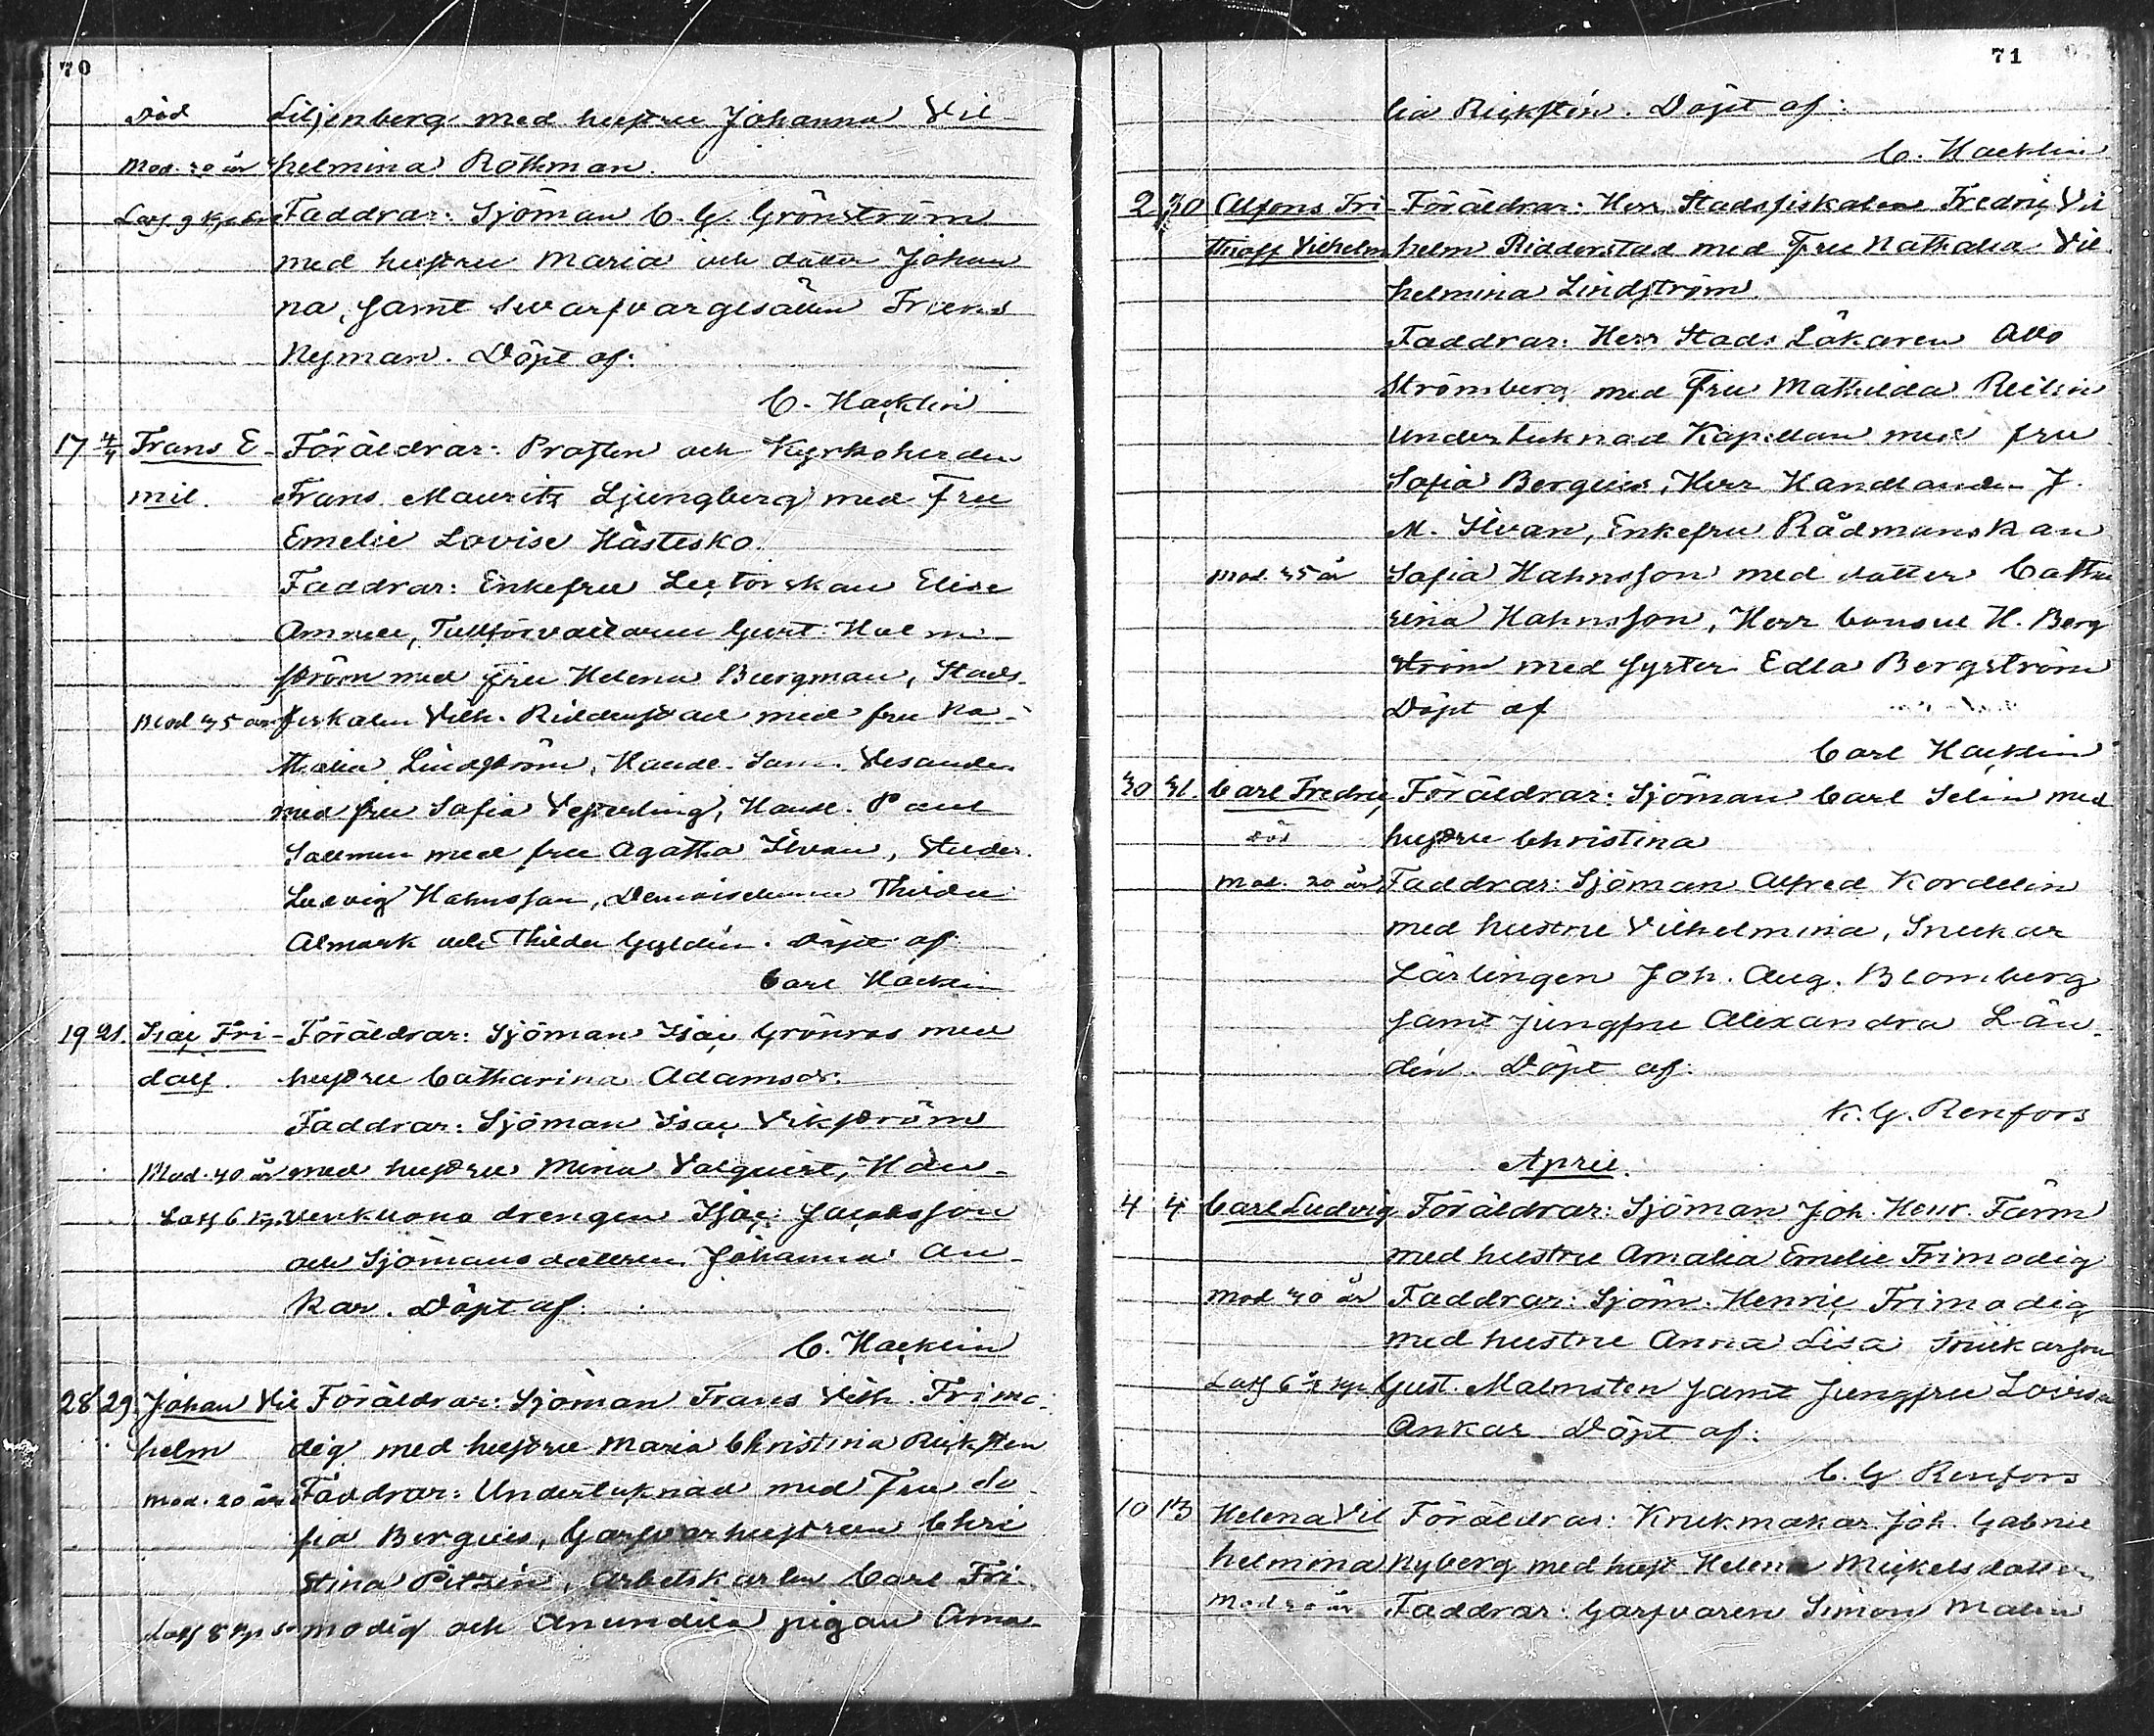 70
död Liljenberg med hustru Johanna Vil-
Mod. 30 år helmina Rothman.
Faddrar: Sjöman C. G. Grönström
med hustru Maria och dotter Johan
na, samt svarfvargesällen Frans
Nyman. Döpt af:
C. Hacklin
17 4/4 Frans E- Föräldrar: Prosten och Kyrkoherden
mil. Frans Mauritz Ljungberg med Fru
Emelie Lovise Hästesko.
Faddrar: Enkefru Lectorskan Elise
Tullförvaltaren Gust. Holm
ström med fru Helena Bergman, Stads-
Mod 35 år fiskalen Vilh. Ridderstad med fru Na-
thalia Lindström, Handl. Sam. Vesander
med fru Sofia Vesterling, Handl. Paul
Sallmen med fru Agatha Ilvan, Stude.
Ludvig Hahnsson, Demoisellerna Thilda
Almark och Thilda Gyldén. Döpt af
Carl Hacklin
19 21. Isac Fri- Föräldrar: Sjöman Isac Grönros med
dolf. hustru Catharina Adamsdr.
Faddrar: Sjöman Isac Vikström
Mod. 40 år med hustru Mina Valquist, Hau-
venkuono drengen Isac Jacobsson
och Sjömansdottren Johanna An-
kar. Döpt af:
C. Hacklin
28 29 Johan Vil Föräldrar: Sjöman Frans Vilh. Frimo-
helm dig med hustru Maria Christina Rickstén
Mod. 20 år Faddrar: Undertecknad med Fru So-
fia Bergius, Garfvarhustrun Chri
stina Pitzén, Arbetskarlen Carl Fri-
modig och Anundila pigan Ama-
71
lia Rickstén. Döpt af:
C. Hacklin
2 30 Alfons Fri Föräldrar: Herr Stadsfiskalen Fredric Vil
thioff Vilhelm helm Ridderstad med Fru Nathalia Vil
helmina Lindström.
Faddrar: Herr Stads Läkaren
Strömberg med Fru Mathilda
Undertecknad Kapellan med fru
Sofia Bergius, Herr Handlanden J.
M. Ilvan, Enkefru Rådmanskan
Mod. 35 år Sofia Hahnsson med dotter Catha
rina Hahnsson, Herr Consul H. Berg
ström med syster Edla Bergström
Döpt af
Carl Hacklin
30 31. Carl Fredric Föräldrar: Sjöman Carl Selin med
död hustru Christina
Mod. 20 år Faddrar: Sjöman Alfred Kordelin
med hustru Vilhelmina, Snickar
Lärlingen Joh. Aug. Blomberg
samt jungfru Alexandra Lån-
dén. Döpt af:
K. G. Renfors
April.
4 4 Carl Ludvig Föräldrar: Sjöman Joh. Henr. Färm
med hustru Amalia Emelie Frimodig
Mod 30 år Faddrar: Sjöm. Henric Frimodig
med hustru Anna Lisa Snickarson
Gust. Malmsten samt Jungfru Lovisa
Ankar. Döpt af:
C. G Renfors
10 13 Helena Vil Föräldrar: Krukmakar Joh. Gabriel
helmina Nyberg med hust. Helena Mickelsdotter
Faddrar: Garfvaren Simon Malin